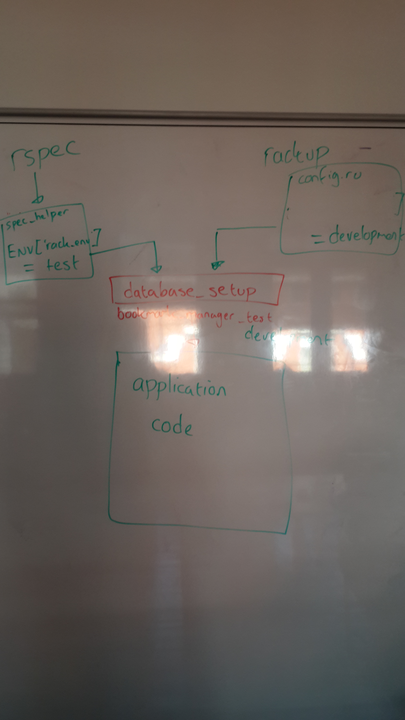 rspec
rackup
spec_helper
ENV['rack_env']
= test
config.ru
]
= development
database_setup
manager_test
development
application
code